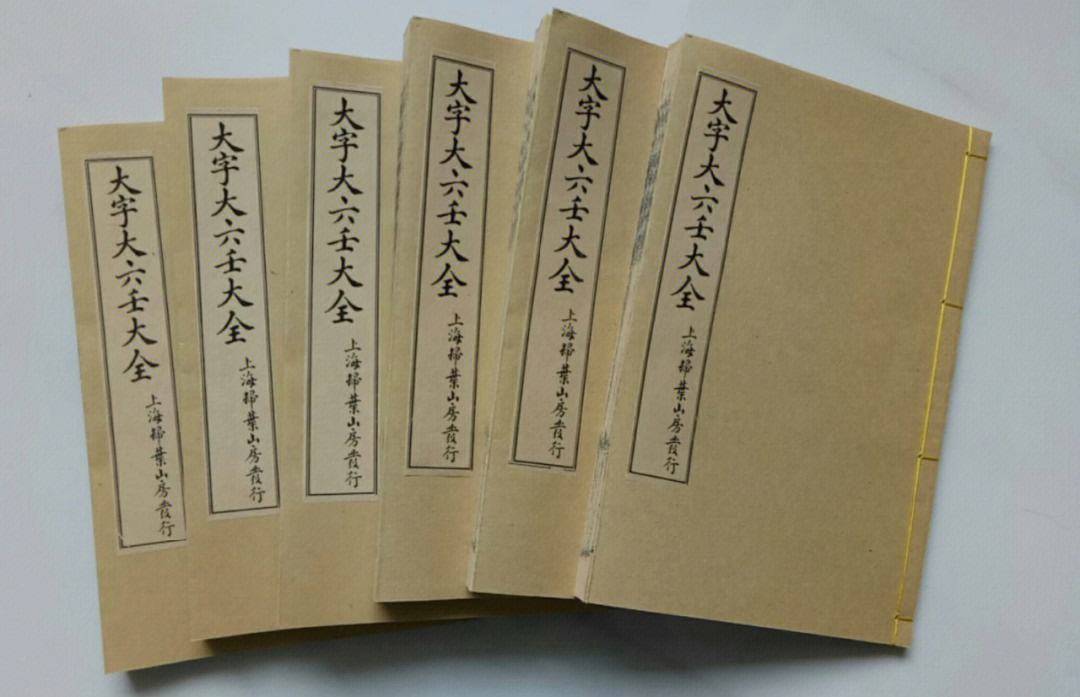 大字大六壬大全
上海掃葉山房發行
大字大六壬大全
上海掃葉山房發行
大字大六壬大全
上海掃葉山房發行
大字大六壬大全
上海掃葉山房發行
大字大六壬大全
上海掃葉山房發行
大字大六壬大全
上海掃葉山房發行